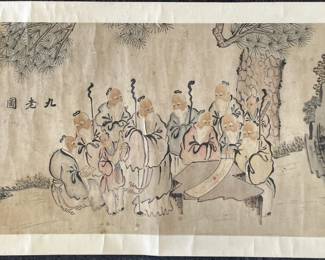 九老圖